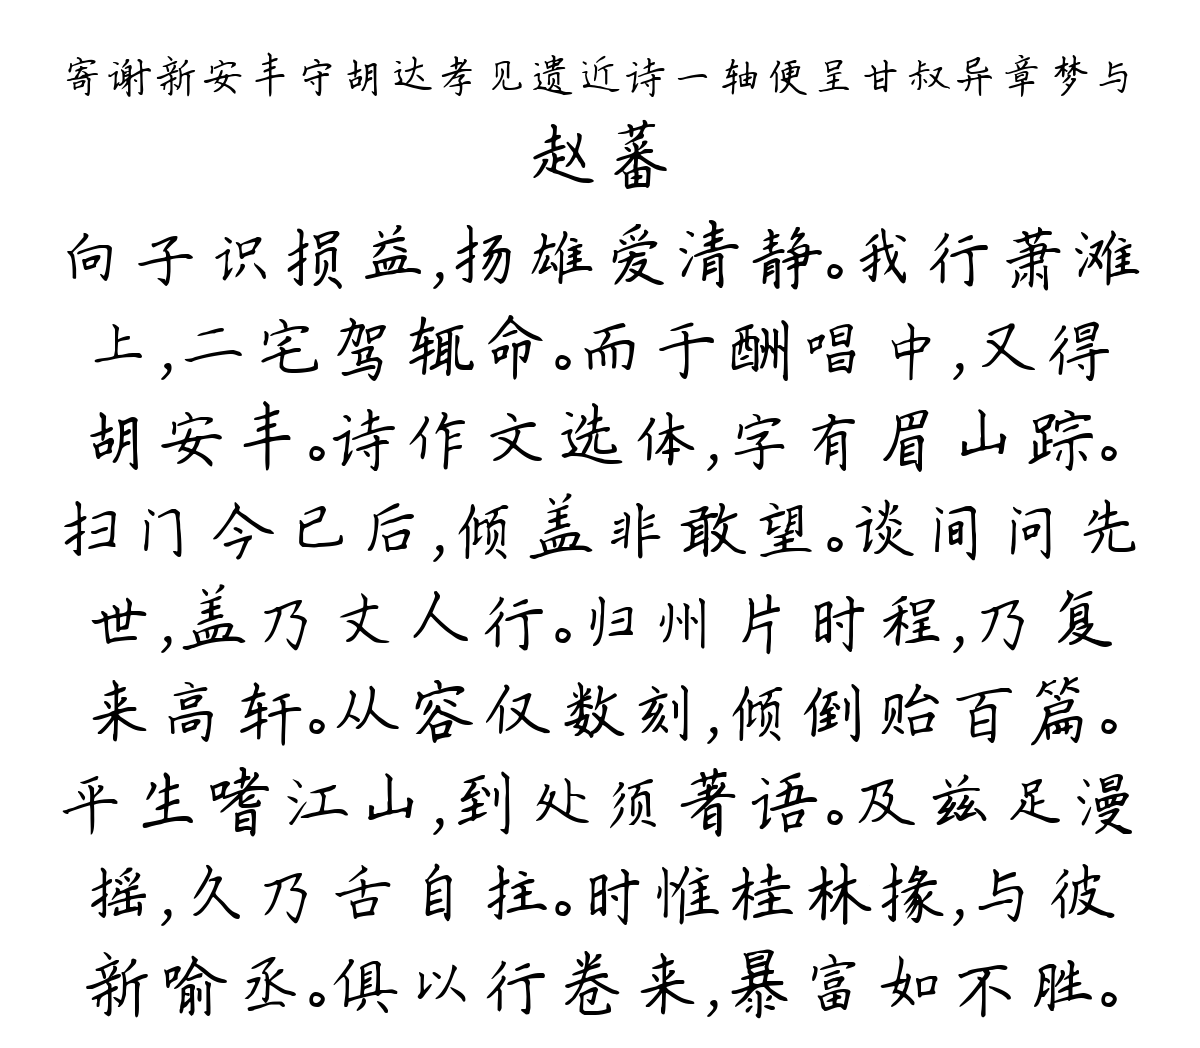 寄谢新安丰守胡达孝见遗近诗一轴便呈甘叔异章梦与
赵蕃
向子识损益,扬雄爱清静。我行萧滩
上,二宅驾辄命。而于酬唱中,又得
胡安丰。诗作文选体,字有眉山踪。
扫门今已后,倾盖非敢望。谈间问先
世,盖乃丈人行。归州片时程,乃复
来高轩。从容仅数刻,倾倒贻百篇。
平生嗜江山,到处须著语。及兹足漫
摇,久乃舌自拄。时惟桂林掾,与彼
新喻丞。俱以行卷来,暴富如不胜。